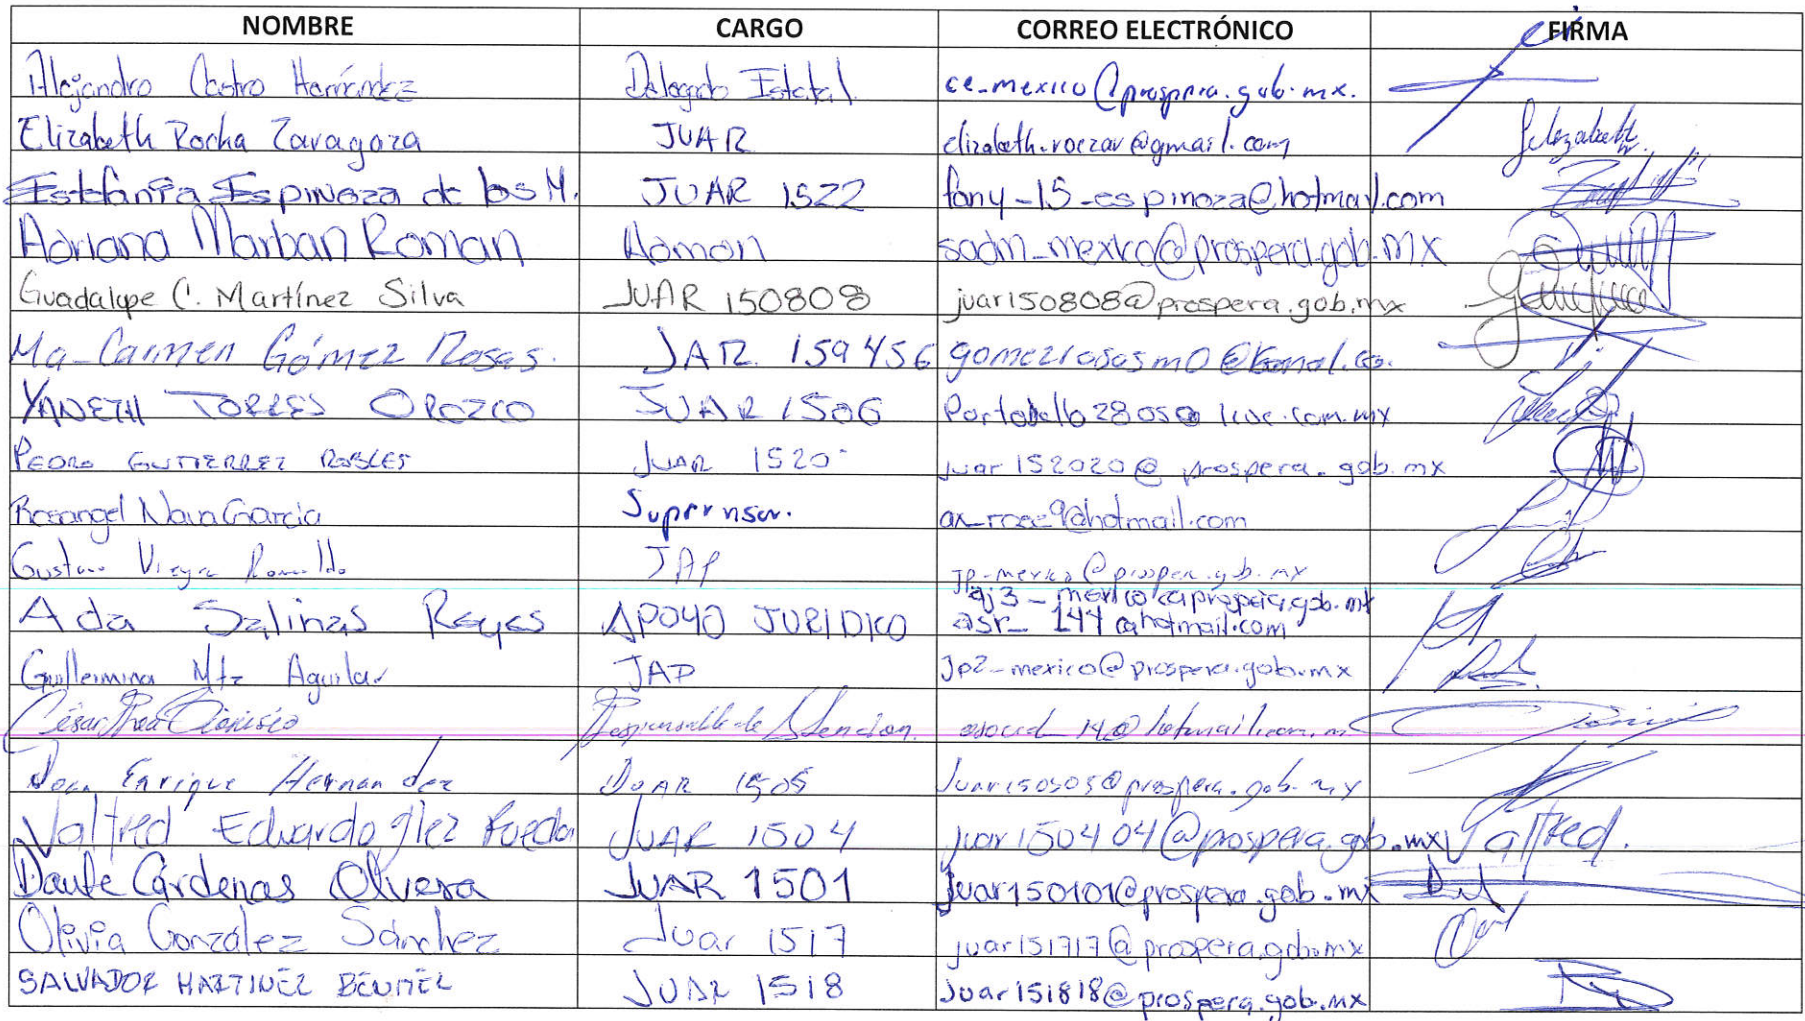 NOMBRE CARGO CORREO ELECTRÓNICO FIRMA
Alejandro Castro Hernández Delegado Estatal ce_mexico@prospera.gob.mx.
Elizabeth Rocha Zaragoza JUAR elizabeth.roczar@gmail.com
Estefania Espinoza de los M. JUAR 1522 fany_15_espinoza@hotmail.com
Adriana Marban Roman sadm_mexico@prospera.gob.mx
Guadalupe C. Martínez Silva JUAR 150808 juar150808@prospera.gob.mx
Ma_Carmen Gómez Rosas. JAR 159456
YANETH TORRES OROZCO JUAR 1506
PEDRO GUTIERREZ ROBLES JUAR 1520 juar152020@prospera.gob.mx
Rosangel Nava Garcia Supervisor.
Gustavo Vieyra JAP jp_mexico@prospera.gob.mx
Ada Salinas Reyes APOYO JURIDICO aj3_mexico@prospera.gob.mx
asr_144@hotmail.com
Guillermina Mtz Aguilar JAP jp2_mexico@prospera.gob.mx
César Responsable de Atencion.
Juan Enrique Hernandez JUAR 1505 Juar150505@prospera.gob.mx
Valfred Eduardo Glez Rueda JUAR 1504 juar150404@prospera.gob.mx Valfred.
Dante Cárdenas Olvera JUAR 1501 juar150101@prospera.gob.mx
Olivia González Sánchez Juar 1517 juar151717@prospera.gob.mx
SALVADOR MARTINEZ JUAR 1518 Juar151818@prospera.gob.mx